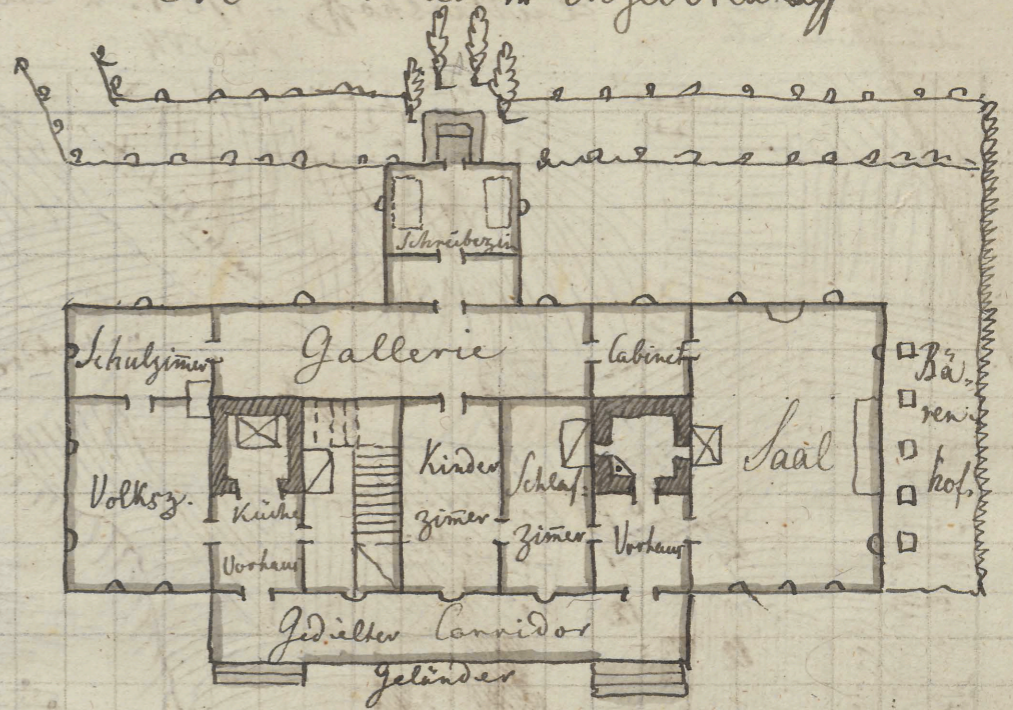 Schreibezim
Schulzim̄er
Gallerie
Cabinet
Bä-
ren-
hof.
Volksz.
Küche
Vorhaus
Kinder
zim̄er
Schlaf-
zim̄er
Vorhaus
Saal
Gedielter Corridor
Geländer